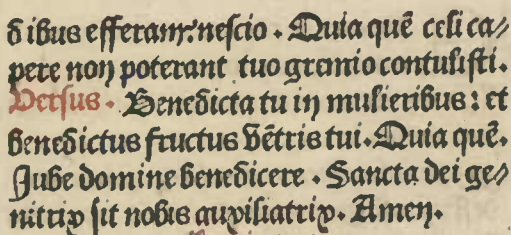 dibus efferam: nescio. Quia quē celi ca/
pere non poterant tuo gremio contulisti.
Versus. Benedicta tu in mulieribus: et
benedictus fructus vētris tui. Quia quē.
Jube domine benedicere. Sancta dei ge/
nitrix sit nobis auxiliatrix. Amen.